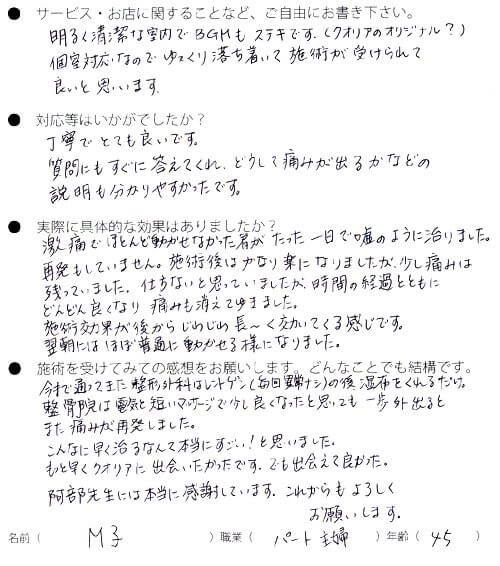 ● サービス・お店に関することなど、ご自由にお書き下さい。
明るく清潔な室内でBGMもステキです。(クオリアのオリジナル?)
個室対応なのでゆっくり落ち着いて施術が受けられて
良いと思います。
● 対応等はいかがでしたか?
丁寧でとても良いです。
質問にもすぐに答えてくれ、どうして痛みが出るかなどの
説明も分かりやすかったです。
● 実際に具体的な効果はありましたか?
激痛でほとんど動かせなかった肩がたった一日で嘘のように治りました。
再発もしていません。施術後はかなり楽になりましたが、少し痛みは
残っていました。仕方ないと思っていましたが、時間の経過とともに
どんどん良くなり痛みも消えてゆきました。
施術効果が後からじわじわ長〜く効いてくる感じです。
翌朝にはほぼ普通に動かせる様になりました。
● 施術を受けてみての感想をお願いします。どんなことでも結構です。
今まで通ってきた整形外科はレントゲン(毎回異常ナシ)の後、湿布をくれるだけ。
整骨院は電気と短いマッサージで少し良くなったと思っても一歩外出ると
また痛みが再発しました。
こんなに早く治るなんて本当にすごい!と思いました。
もっと早くクオリアに出会いたかったです。でも出会えて良かった。
阿部先生には本当に感謝しています。これからもよろしく
お願いします。
名前( M子 )職業( パート主婦 )年齢( 45 )